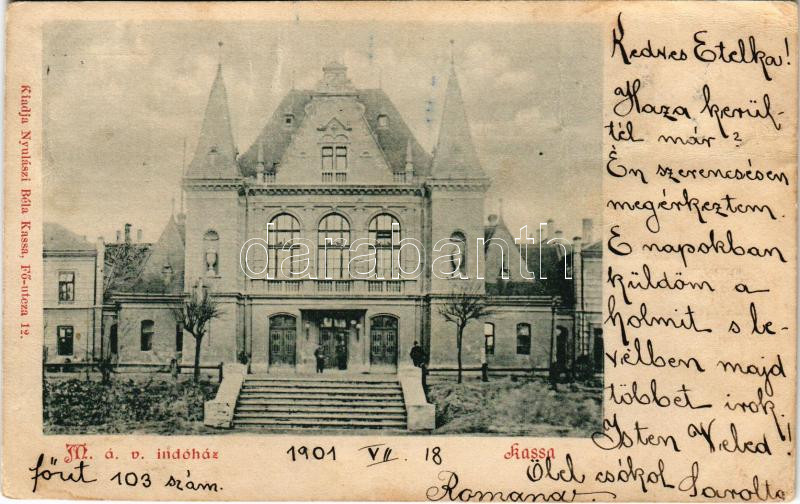 Kiadja Nyulászi Béla Kassa, Fő-utcza 12.
Kedves Etelka!
Haza kerül-
tél már?
Én szerencsésen
megérkeztem.
E napokban
küldöm a
holmit s le-
vélben majd
többet irok.
Isten Veled!
Ölel csókol Sarolta
Romana
M. á. v. indóház
1901 VII. 18
Kassa
főút 103 szám.
darabanth